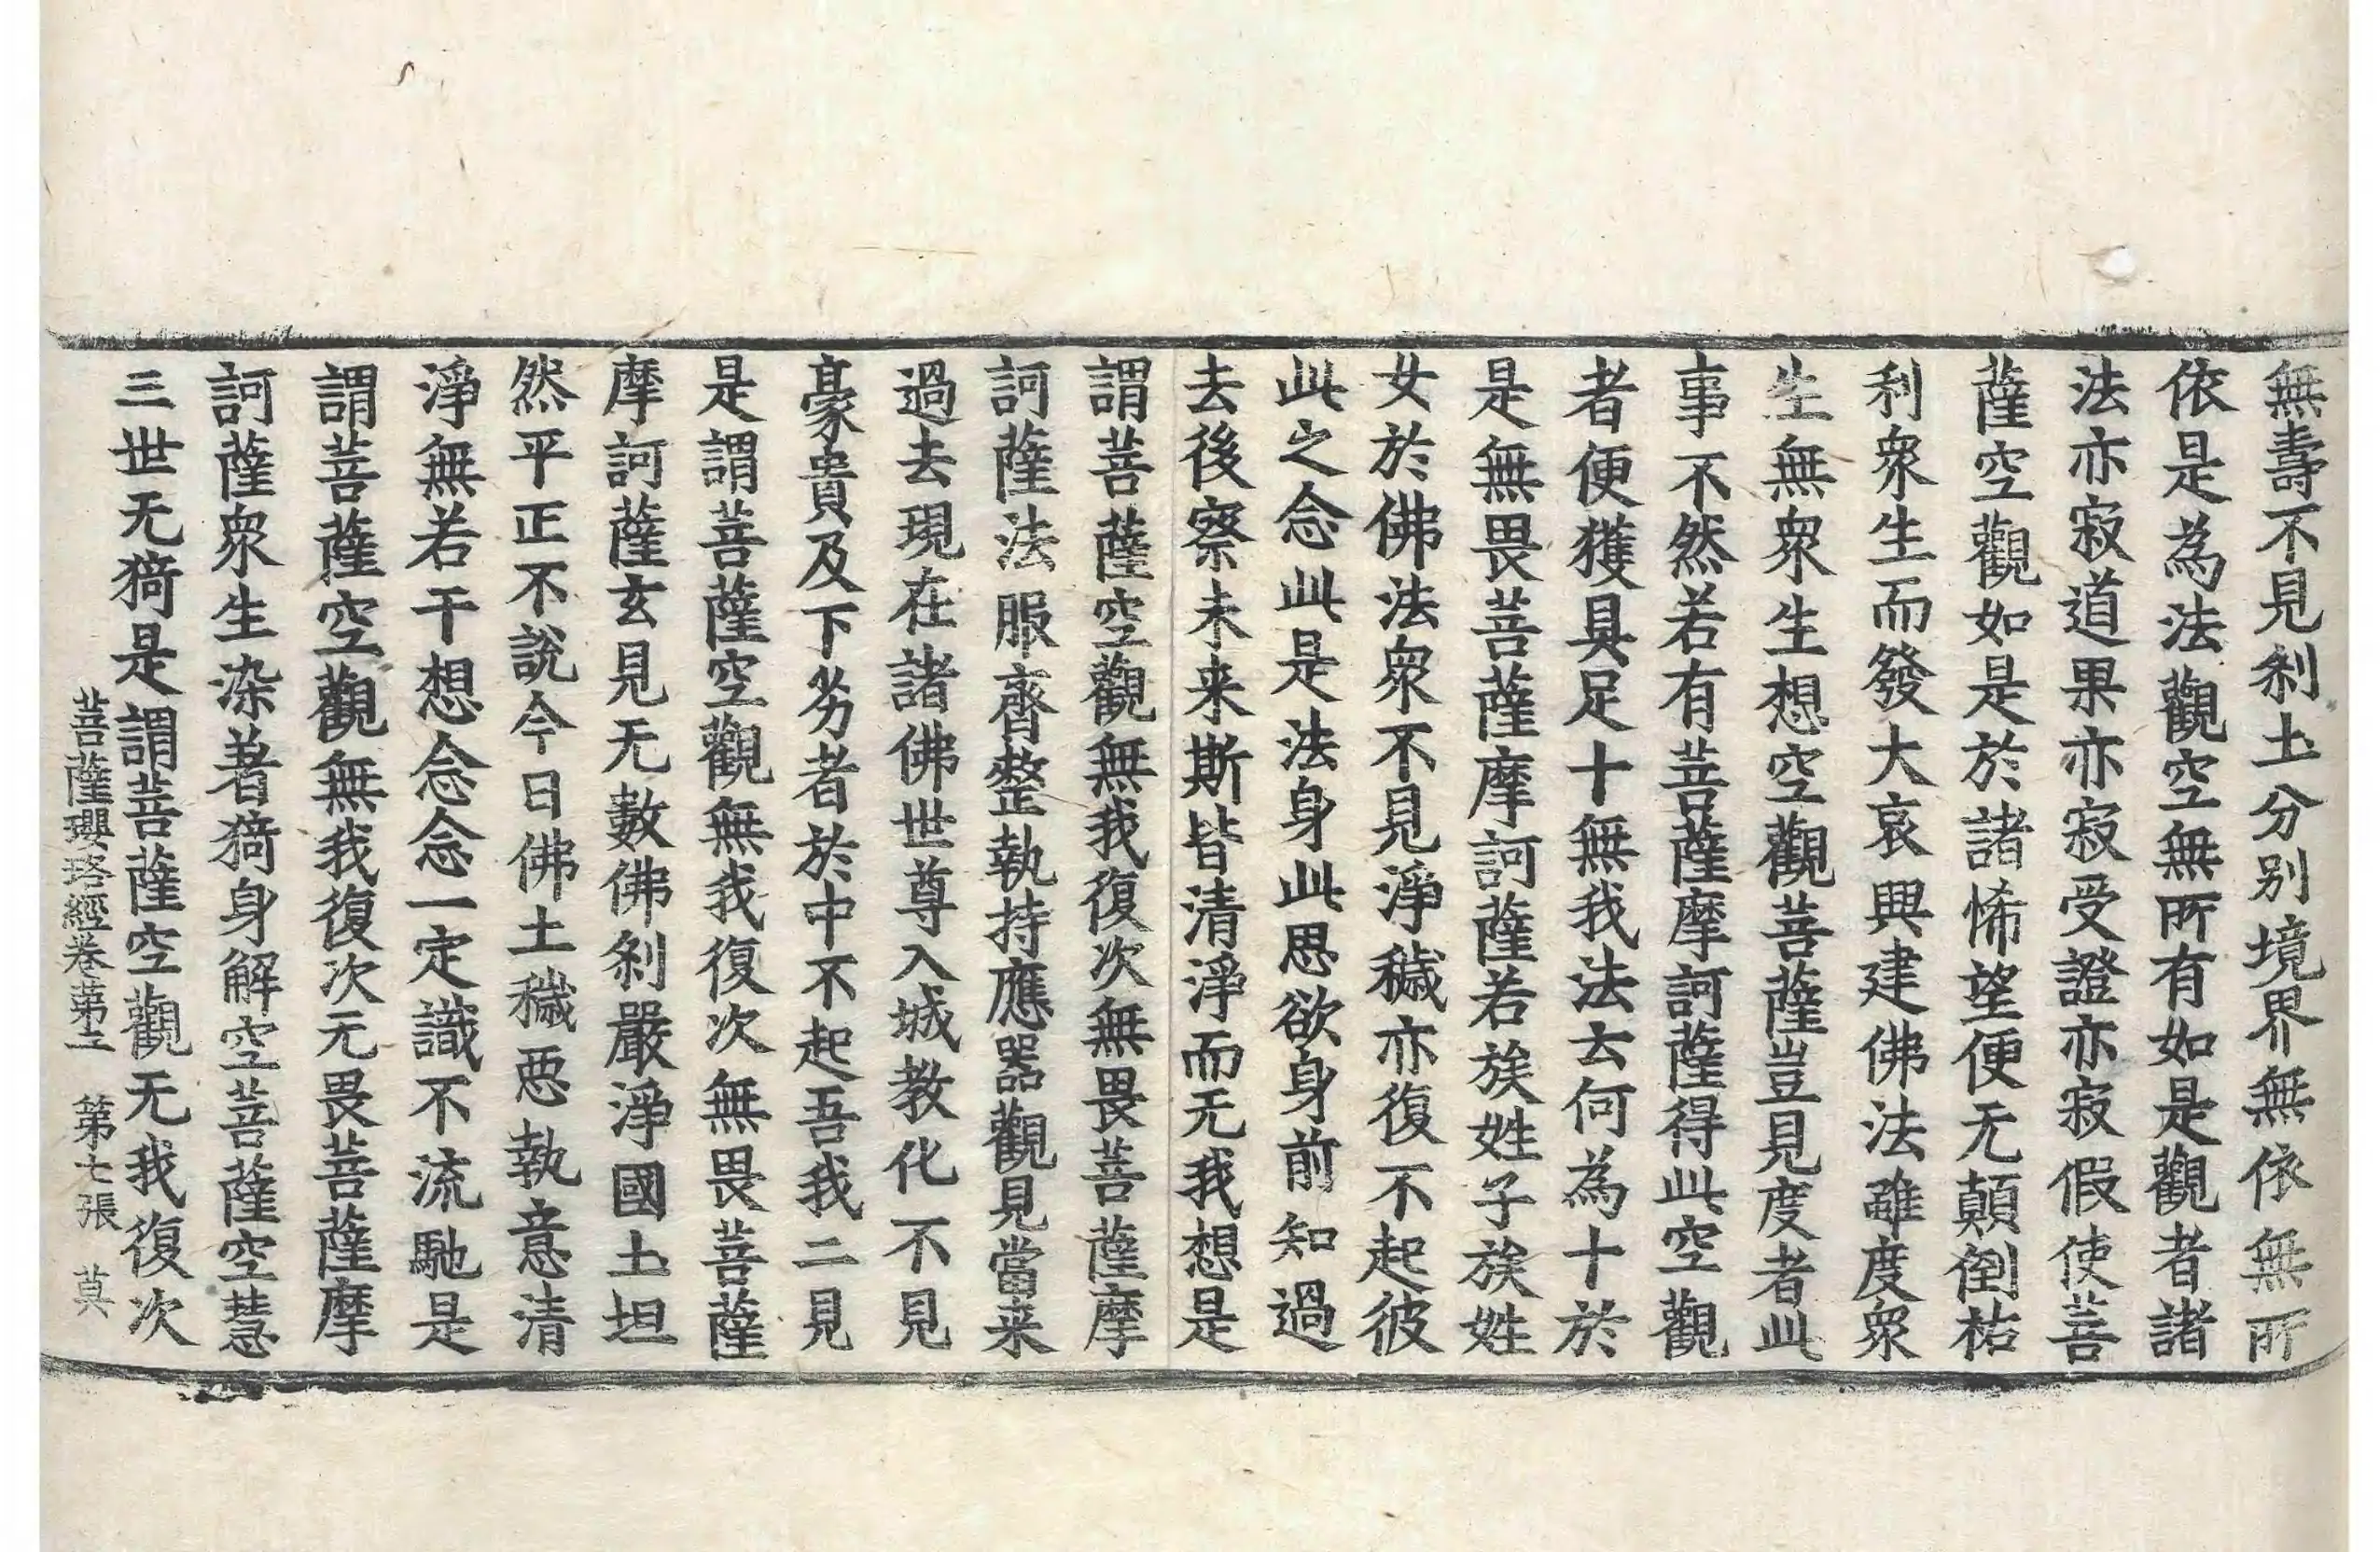 無壽不見刹土分別境界無依無所
依是為法觀空無所有如是觀者諸
法亦寂道果亦寂受證亦寂假使菩
薩空觀如是於諸悕望便无顛倒祐
利衆生而發大哀興建佛法雖度衆
生無衆生想空觀菩薩豈見度者此
事不然若有菩薩摩訶薩得此空觀
者便獲具足十無我法云何為十於
是無畏菩薩摩訶薩若族姓子族姓
女於佛法衆不見淨穢亦復不起彼
此之念此是法身此思欲身前知過
去後察未来斯皆清淨而无我想是
謂菩薩空觀無我復次無畏菩薩摩
訶薩法服齊整執持應器觀見當来
過去現在諸佛世尊入城教化不見
豪貴及下劣者於中不起吾我二見
是謂菩薩空觀無我復次無畏菩薩
摩訶薩玄見无數佛刹嚴淨國土坦
然平正不說今日佛土穢惡執意清
淨無若干想念念一定識不流馳是
謂菩薩空觀無我復次无畏菩薩摩
訶薩衆生染著猗身解空菩薩空慧
三世无猗是謂菩薩空觀无我復次
菩薩瓔珞經卷第二 第七張 莫